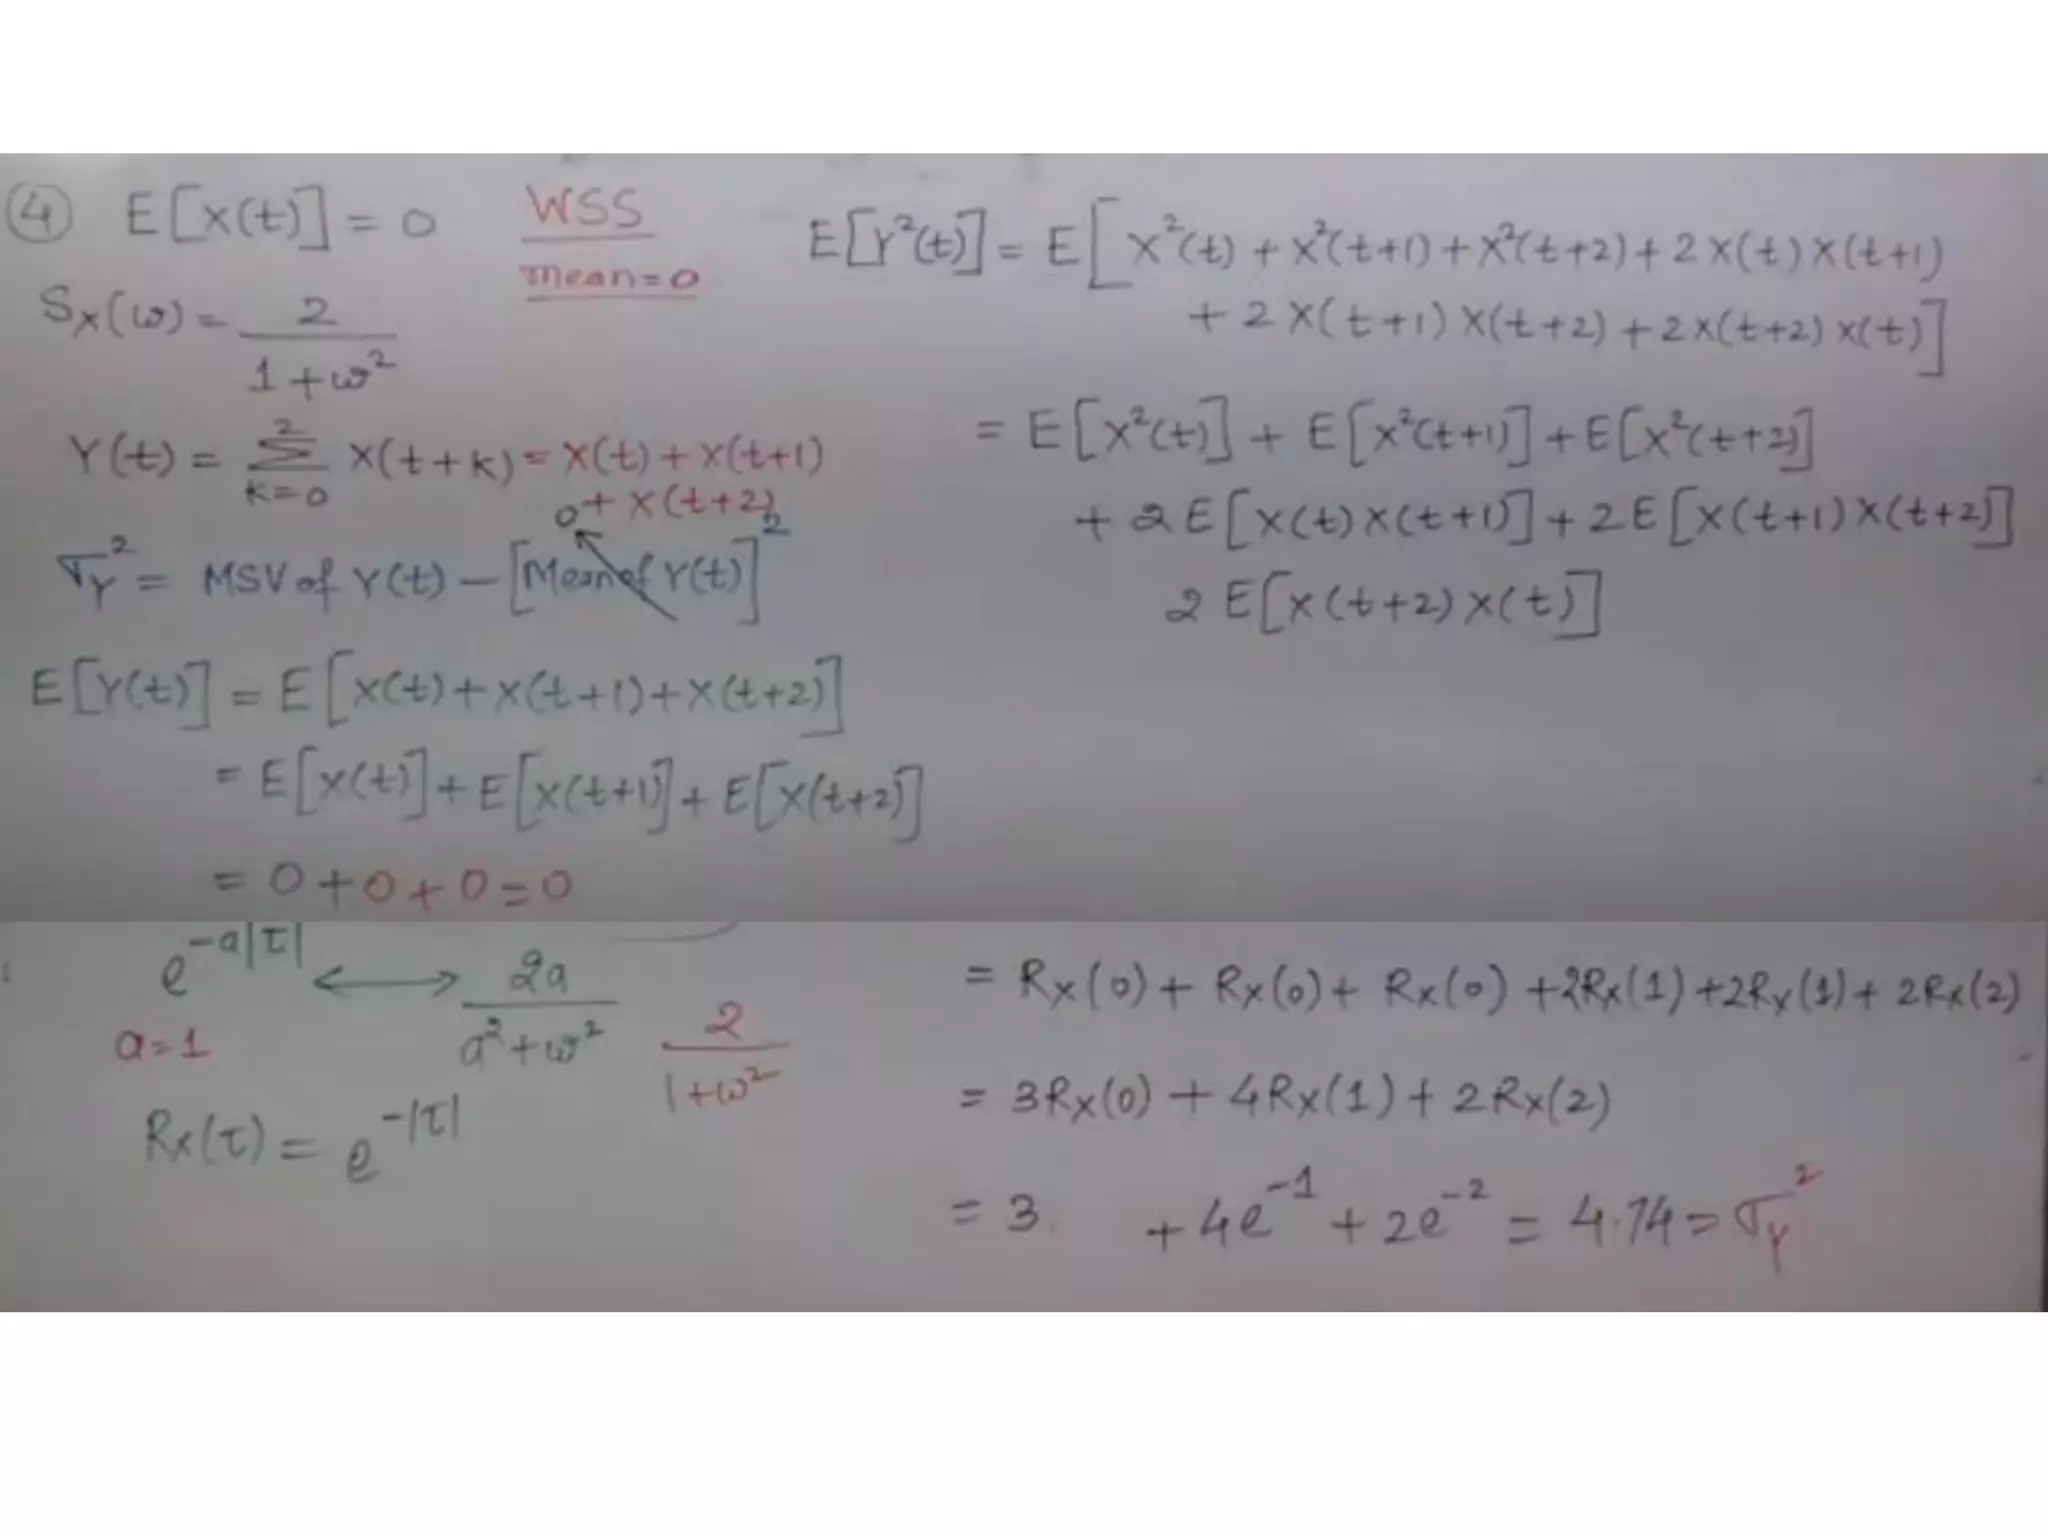 ④ E[X(t)] = 0 WSS
mean = 0
Sx(ω) = 2 / (1+ω²)
Y(t) = Σ_{K=0}^{2} X(t+K) = X(t) + X(t+1)
+ X(t+2)
0
σY² = MSV of Y(t) – [Mean of Y(t)]²
E[Y(t)] = E[X(t) + X(t+1) + X(t+2)]
= E[X(t)] + E[X(t+1)] + E[X(t+2)]
= 0 + 0 + 0 = 0
e^{-a|τ|} ⟷ 2a / (a²+ω²)
a=1 2 / (1+ω²)
Rx(τ) = e^{-|τ|}
E[Y²(t)] = E[X²(t) + X²(t+1) + X²(t+2) + 2X(t)X(t+1)
+ 2X(t+1)X(t+2) + 2X(t+2)X(t)]
= E[X²(t)] + E[X²(t+1)] + E[X²(t+2)]
+ 2E[X(t)X(t+1)] + 2E[X(t+1)X(t+2)]
2E[X(t+2)X(t)]
= Rx(0) + Rx(0) + Rx(0) + 2Rx(1) + 2Rx(1) + 2Rx(2)
= 3Rx(0) + 4Rx(1) + 2Rx(2)
= 3 + 4e^{-1} + 2e^{-2} = 4.74 = σY²